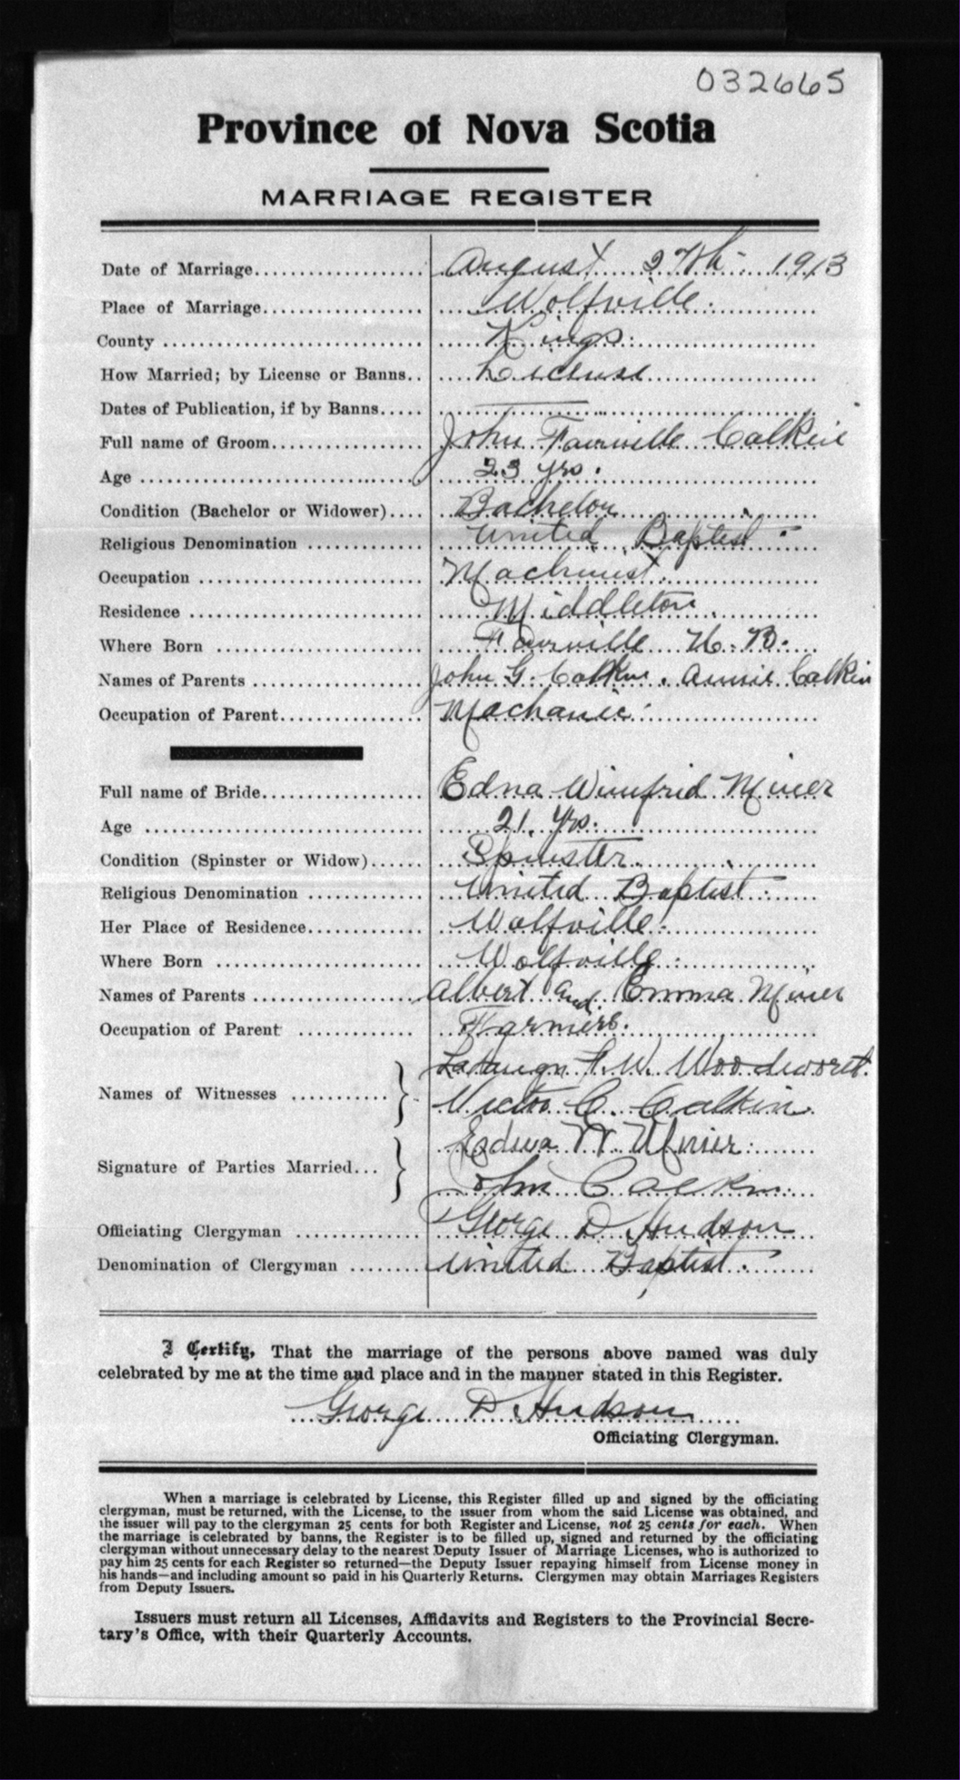 032665
Province of Nova Scotia
MARRIAGE REGISTER
Date of Marriage August 27th 1913
Place of Marriage Wolfville
County Kings
How Married; by License or Banns License
Dates of Publication, if by Banns
Full name of Groom John Fairville Calkin
Age 23 yrs.
Condition (Bachelor or Widower) Bachelor
Religious Denomination United Baptist
Occupation Machinist
Residence Middleton
Where Born Fairville N. B.
Names of Parents John G. Calkin. Annie Calkin
Occupation of Parent Machanic
Full name of Bride Edna Winifrid Miner
Age 21 Yrs.
Condition (Spinster or Widow) Spinster
Religious Denomination United Baptist
Her Place of Residence Wolfville
Where Born Wolfville
Names of Parents Albert and Emma Miner
Occupation of Parent Farmers.
Names of Witnesses F. W. Woodworth
C. Calkin
Signature of Parties Married W Miner
John Calkin
Officiating Clergyman George D Hudson
Denomination of Clergyman United Baptist.
I Certify, That the marriage of the persons above named was duly
celebrated by me at the time and place and in the manner stated in this Register.
George D Hudson
Officiating Clergyman.
When a marriage is celebrated by License, this Register filled up and signed by the officiating
clergyman, must be returned, with the License, to the issuer from whom the said License was obtained, and
the issuer will pay to the clergyman 25 cents for both Register and License, not 25 cents for each. When
the marriage is celebrated by banns, the Register is to be filled up, signed and returned by the officiating
clergyman without unnecessary delay to the nearest Deputy Issuer of Marriage Licenses, who is authorized to
pay him 25 cents for each Register so returned—the Deputy Issuer repaying himself from License money in
his hands—and including amount so paid in his Quarterly Returns. Clergymen may obtain Marriages Registers
from Deputy Issuers.
Issuers must return all Licenses, Affidavits and Registers to the Provincial Secre-
tary's Office, with their Quarterly Accounts.